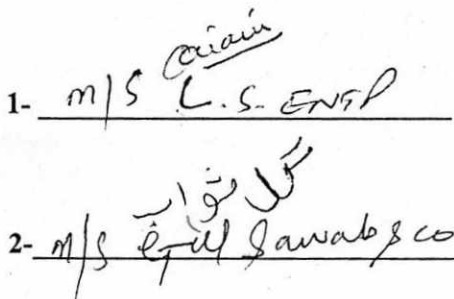 1- M/S L.S. ENTP
گل ثواب
2- M/S Gul Sawab & co